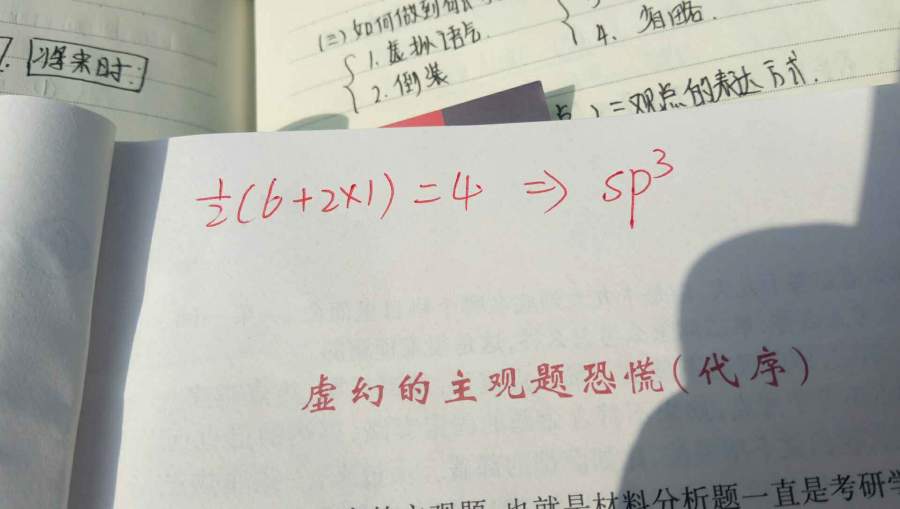 (三)如何做到
1. 虚拟语气
2. 倒装
4. 省略.
将来时.
二观点的表达方式.
½(6+2×1)=4 ⇒ sp³
虚幻的主观题恐慌(代序)
主观题,也就是材料分析题一直是考研